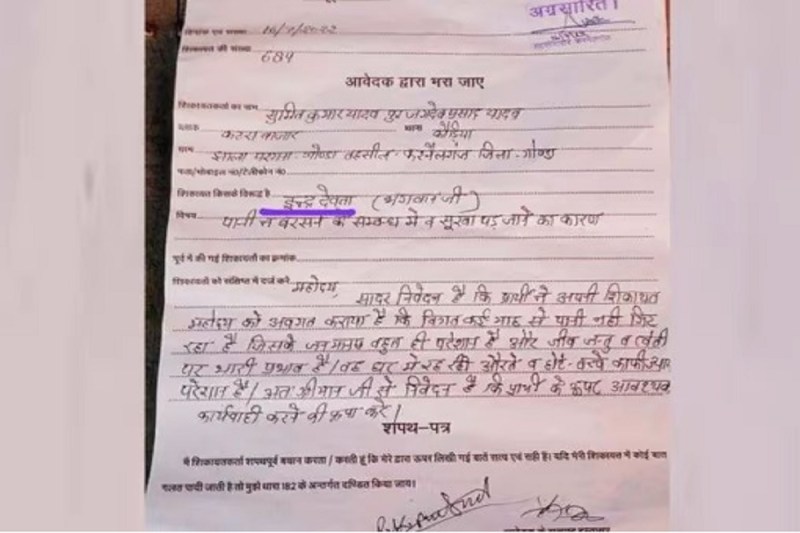 अग्रसारित।
दिनांक एवं समय 16/7/2022
शिकायत की संख्या 684
आवेदक द्वारा भरा जाए
शिकायतकर्ता का नाम सुमित कुमार यादव पुत्र जगदेव प्रसाद यादव
ब्लाक कटरा बाजार थाना कौड़िया
ग्राम झाला परगना गोण्डा तहसील-करनैलगंज जिला-गोण्डा
शिकायत किसके विरूद्ध है इन्द्र देवता (भगवान जी)
विषय पानी न बरसने के सम्बन्ध में व सूखा पड़ जाने का कारण
पूर्व में की गई शिकायतों का क्रमांक
शिकायतों को संक्षिप्त में दर्ज करें महोदय,
सादर निवेदन है कि प्रार्थी ने अपनी शिकायत
महोदय को अवगत कराया है कि विगत कई माह से पानी नही गिर
रहा है जिसके जनमानस बहुत ही परेशान है और जीव जन्तु व खेती
पर भारी प्रभाव है। घर में रह रही औरते व छोटे-बच्चे काफी
परेशान है। अतः श्रीमान जी से निवेदन है कि प्रार्थी के ऊपर आवश्यक
कार्यवाही करने की कृपा करें।
शपथ-पत्र
मै शिकायतकर्ता शपथपूर्व बयान करता / करती हूं कि मेरे द्वारा ऊपर लिखी गई बाते सत्य एवं सही है। यदि मेरी शिकायत में कोई बात
गलत पायी जाती है तो मुझे धारा 182 के अन्तर्गत दण्डित किया जाय।